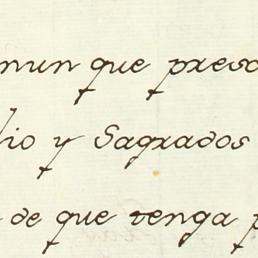 mun que preso
lio y Sagrados
de que tenga p